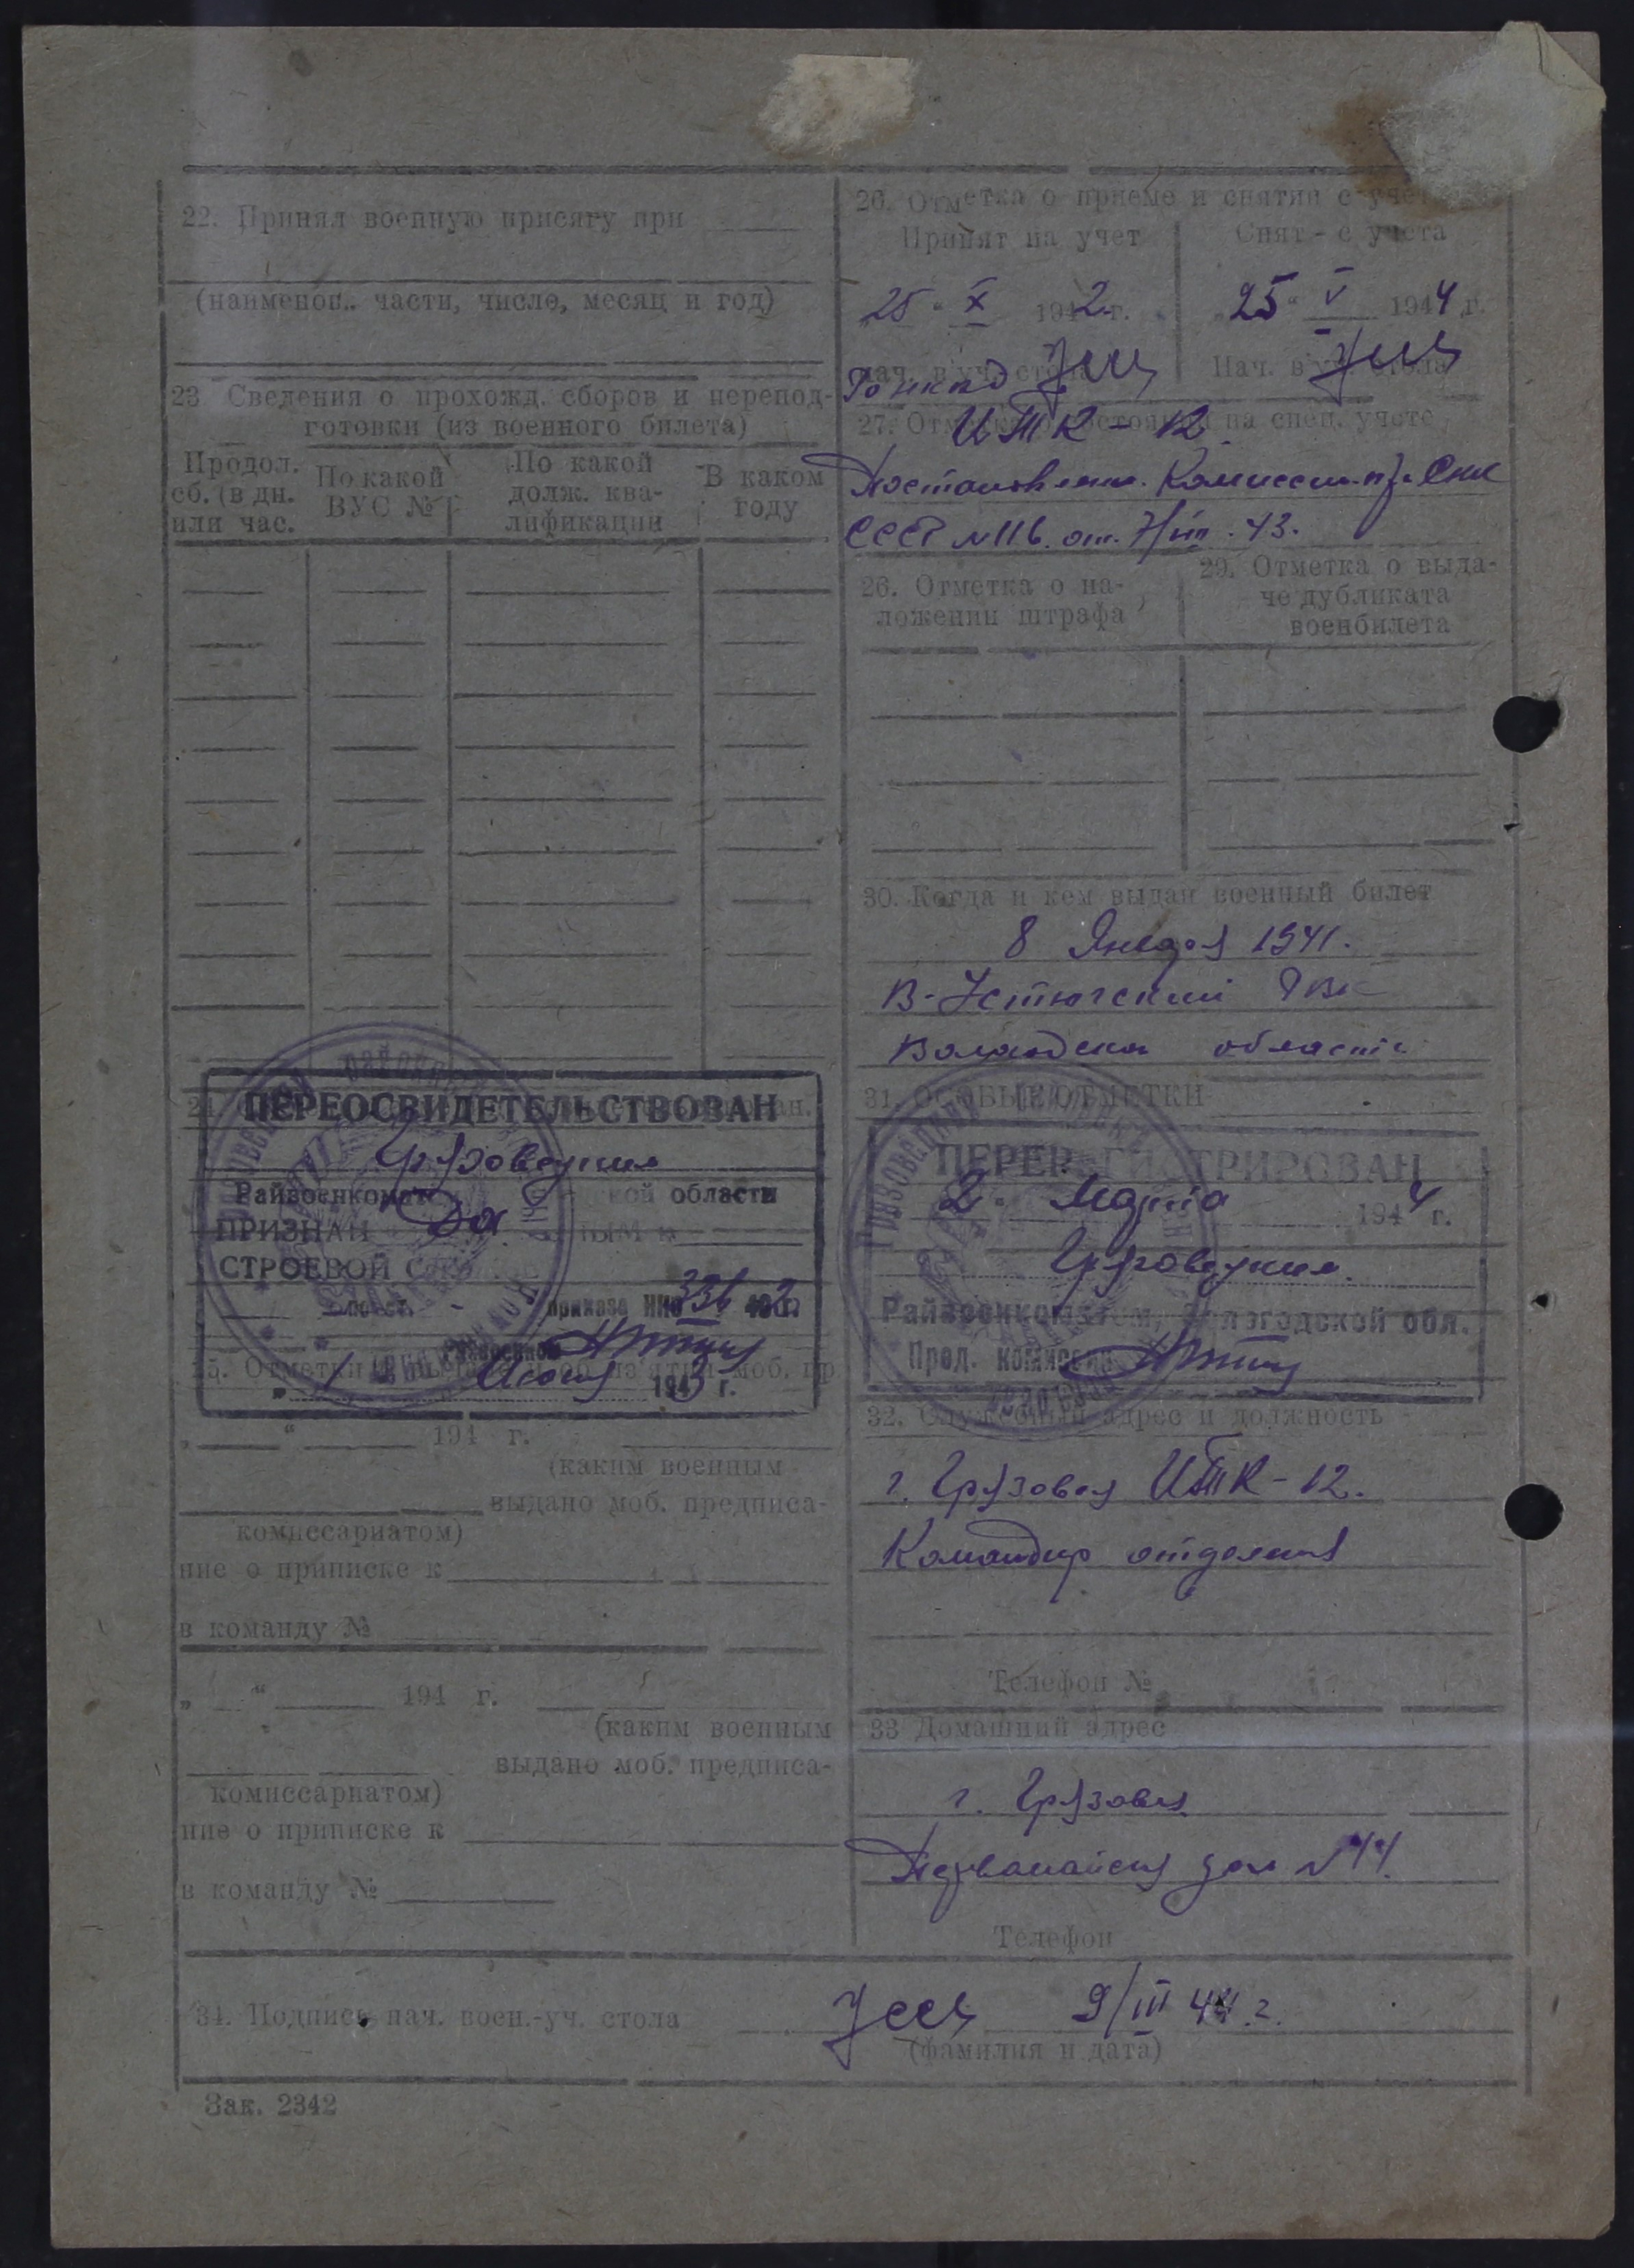 22. Принял военную присягу при
(наименов. части, число, месяц и год)
23. Сведения о прохожд. сборов и перепод-
готовки (из военного билета)
Продол.
сб. (в дн.
или час.
По какой
ВУС №
По какой
долж. ква-
лификации
В каком
году
24.
ПЕРЕОСВИДЕТЕЛЬСТВОВАН
Райвоенкомат области
ПРИЗНАН
СТРОЕВОЙ
приказа НКО 336 1942 г.
25. Отметки
1 1943 г.
„ “ 194 г.
(каким военным
выдано моб. предписа-
комиссариатом)
ние о приписке к
в команду №
„ “ 194 г.
(каким военным
выдано моб. предписа-
комиссариатом)
ние о приписке к
в команду №
26. Отметка о приеме и снятии с учета
Принят на учет
25 " X 1942 г.
Нач. в.-уч. стола
Снят с учета
„25" V 1944 г.
Нач. в.-уч. стола
ИТК-12
27. Отметка о состоянии на спец. учете
Постановлени. Комиссии при Снк
СССР №116. от. 7/III. 43.
26. Отметка о на-
ложении штрафа
29. Отметка о выда-
че дубликата
военбилета
30. Когда и кем выдан военный билет
8 Января 1941.
В-Устюгский РВК
Вологодской области
31. ОСОБЫЕ ОТМЕТКИ
ПЕРЕРЕГИСТРИРОВАН
2 " Марта 1944 г.
Грязовецким
Райвоенкоматом, Вологодской обл.
Пред. комиссии
32. Служебный адрес и должность
г. Грязовец ИТК-12.
Командир отделения
Телефон №
33 Домашний адрес
г. Грязовец
Первомайская дом № 44.
Телефон
34. Подпись нач. воен.-уч. стола
9/III 44 г.
(фамилия и дата)
Зак. 2342